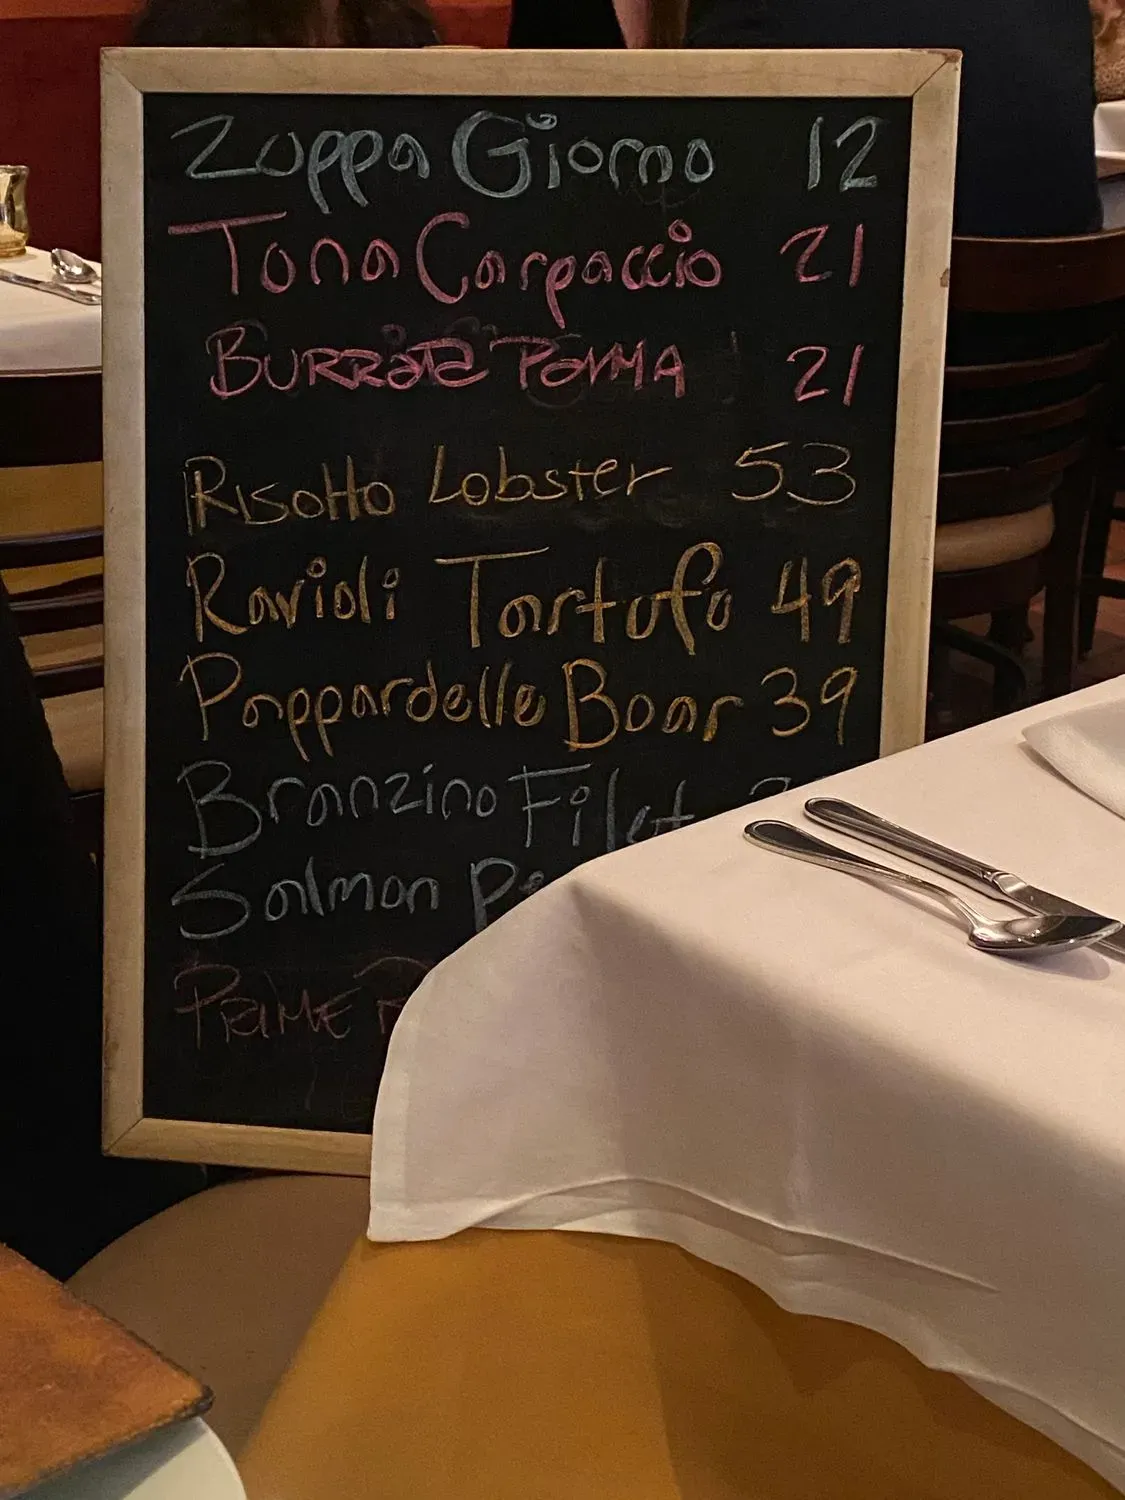 Zuppa Giorno 12
Tuna Carpaccio 21
BURRATA PARMA 21
Risotto Lobster 53
Ravioli Tartufo 49
Pappardelle Boar 39
Branzino Filet
Salmon
PRIME